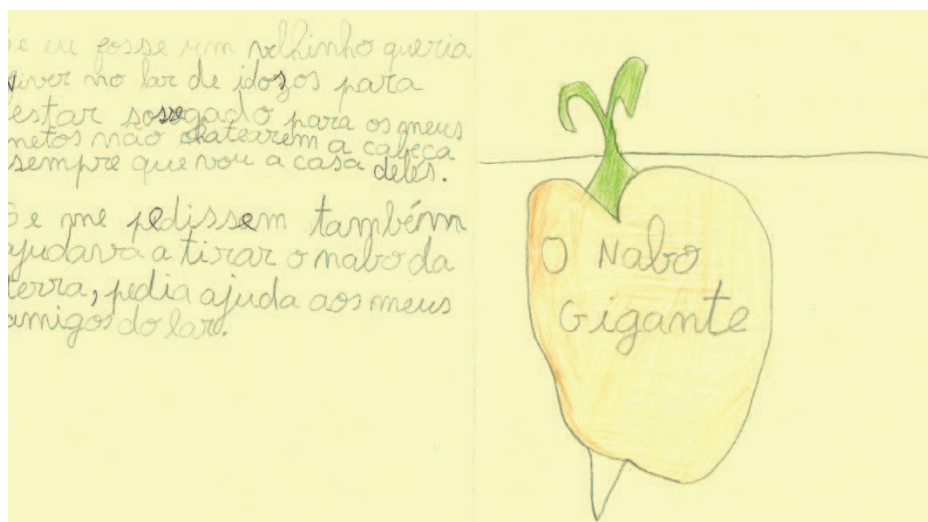 Se eu fosse um velhinho queria
viver no lar de idosos para
estar sossegado para os meus
netos não chatearem a cabeça
sempre que vou a casa deles.
Se me pedissem também
ajudava a tirar o nabo da
terra, pedia ajuda aos meus
amigos do lar.
O Nabo
Gigante